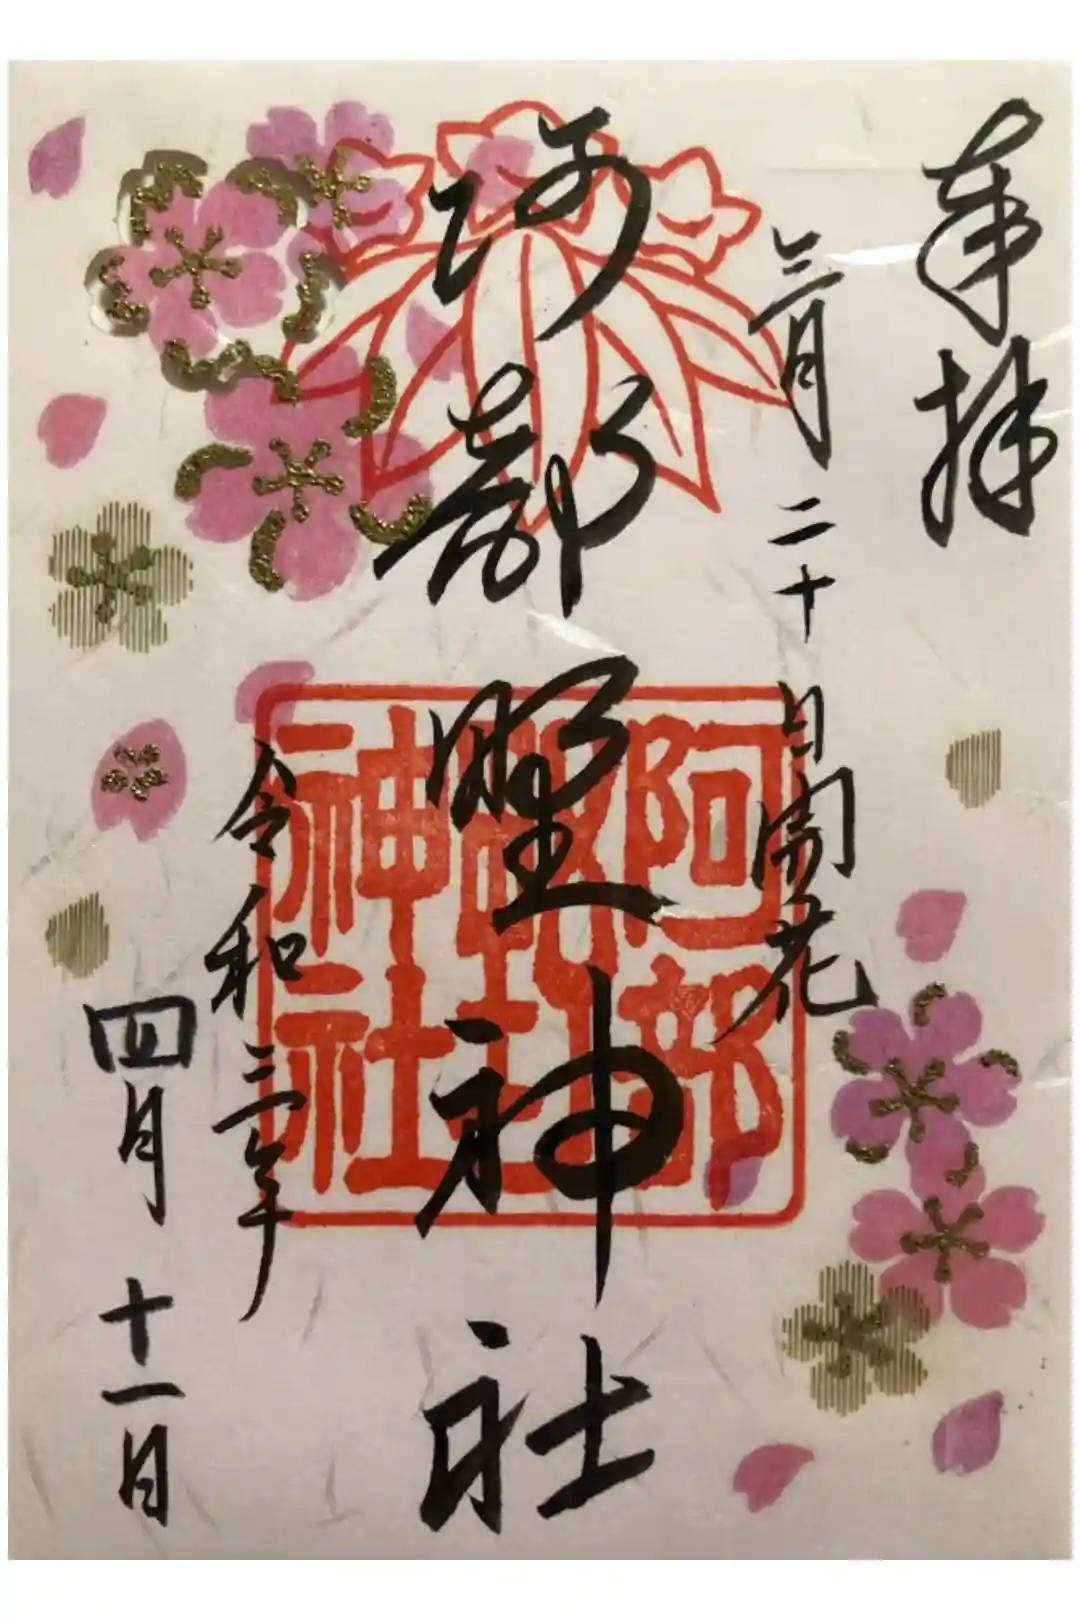 奉拝
三月二十日開花
阿部野神社
阿部野神社
令和三年
四月十一日